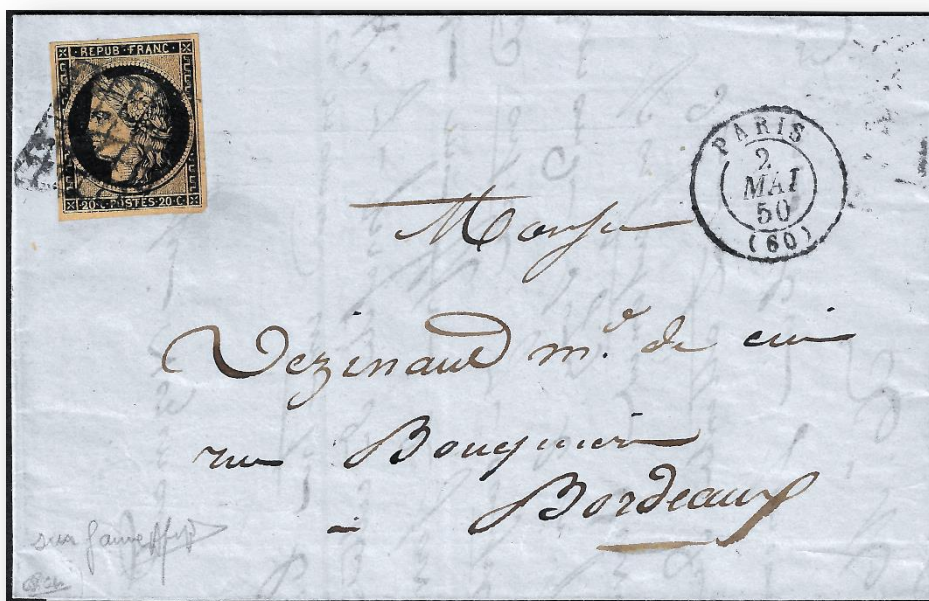 REPUB·FRANC·
20·C·POSTES·20·C·
PARIS
2
MAI
50
(60)
Monsieur
Vezinaud md. de vin
rue Bouquière
à Bordeaux